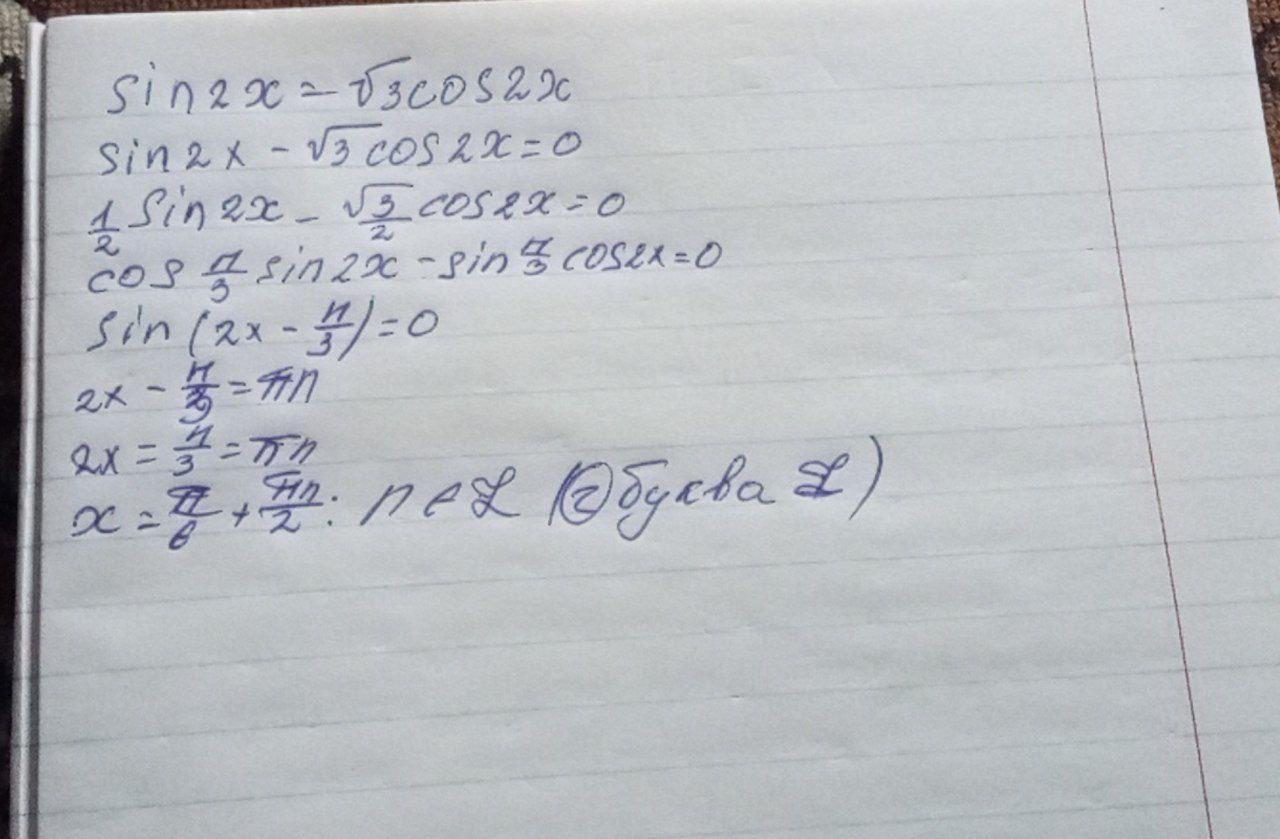 sin2x=√3cos2x
sin2x-√3cos2x=0
1/2 sin2x-√3/2 cos2x=0
cos π/3 sin2x-sin π/3 cos2x=0
sin(2x-π/3)=0
2x-π/3=πn
2x=π/3=πn
x=π/6+πn/2: n∈Z буква Z)